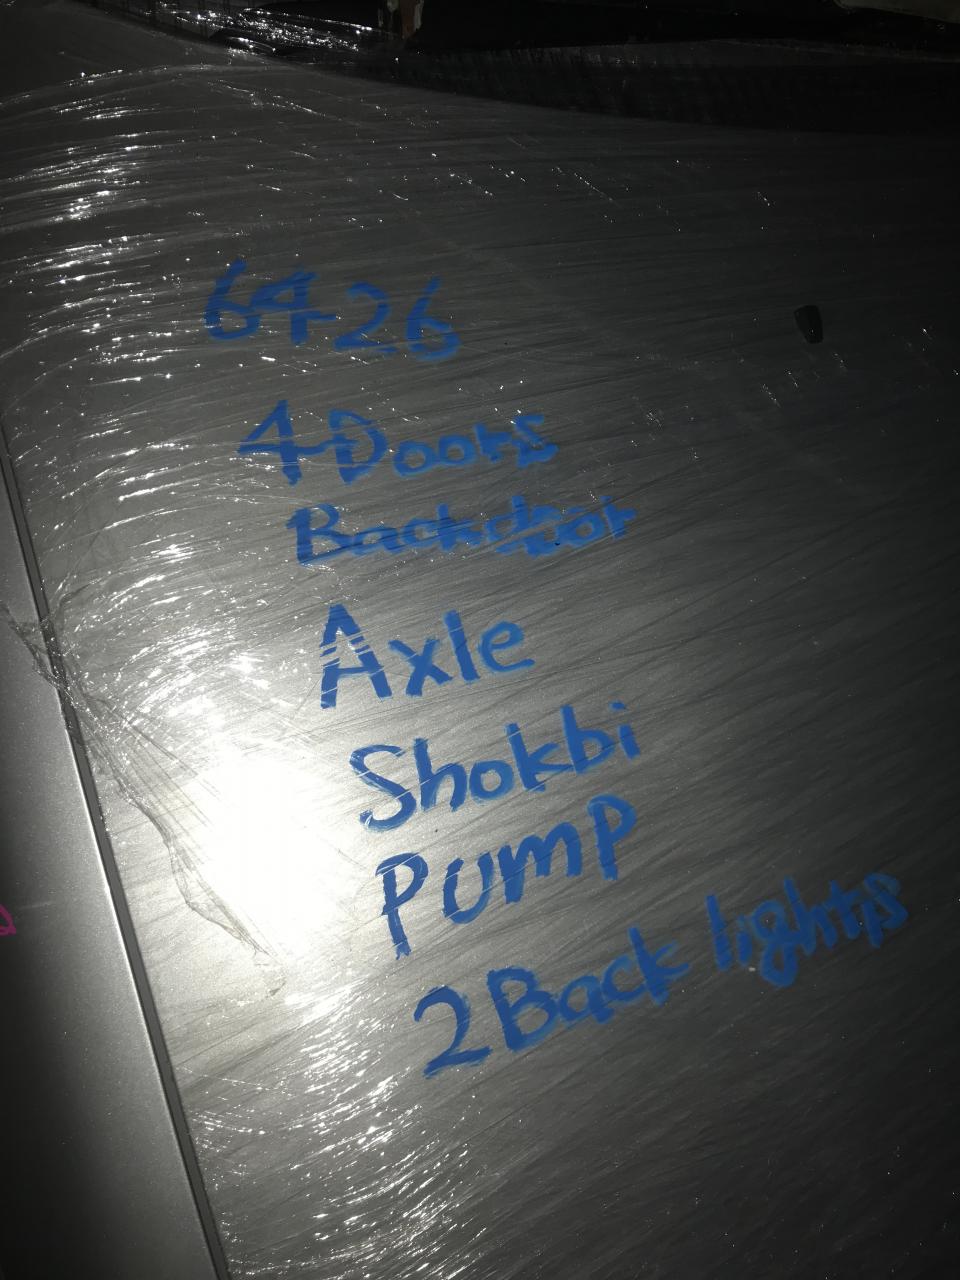 6426
4 Doors
Backdoor
Axle
Shokbi
PUMP
2 Back lights